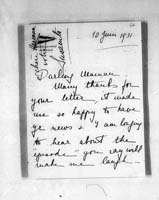 10 Juin 1931
Darling Maman
Many thanks for
your letter, it made
me so happy to have
yr news & I am longing
to hear about the
you say will
make me laugh